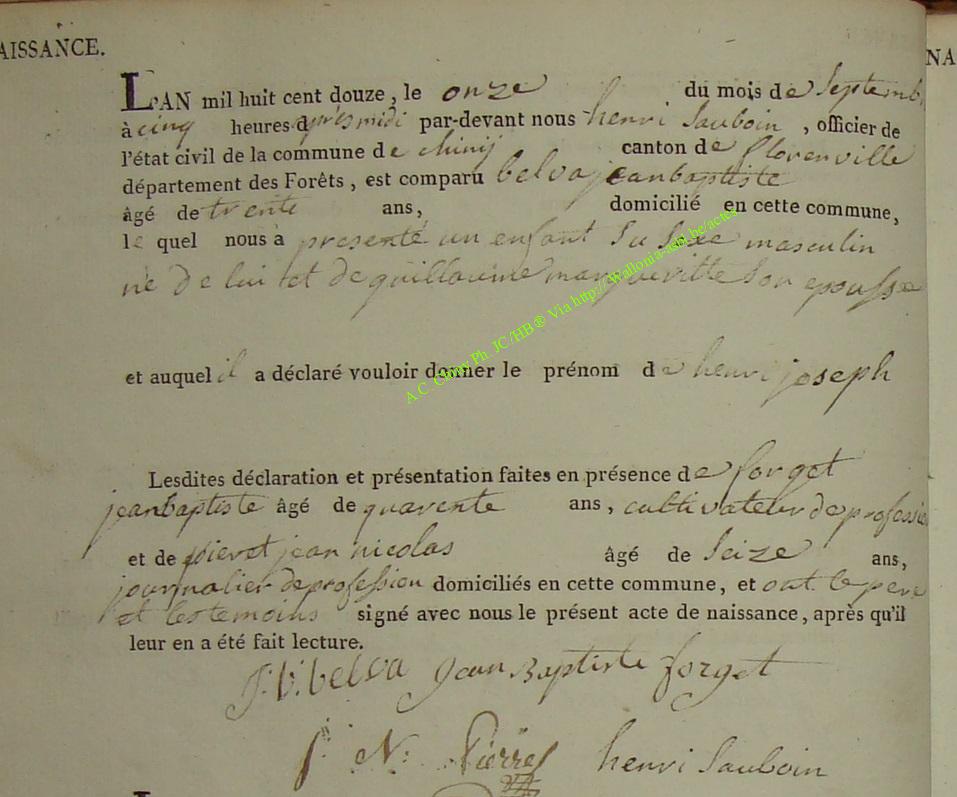 AISSANCE.
NA
L'AN mil huit cent douze, le onze du mois de Septemb
à cinq heures d'après midi par-devant nous henri Sauboin, officier de
l'état civil de la commune de chinij canton de florenville
département des Forêts, est comparu belva jeanbaptiste
âgé de trente ans, domicilié en cette commune,
le quel nous à presenté un enfant du sexe masculin
né de lui et de guillaume margueritte son epousse
et auquel il a déclaré vouloir donner le prénom de henri joseph
Lesdites déclaration et présentation faites en présence de forget
jeanbaptiste âgé de quarente ans, cultivateur de profession
et de pieret jean nicolas âgé de Seize ans,
journalier de profession domiciliés en cette commune, et ont le pere
et les temoins signé avec nous le présent acte de naissance, après qu'il
leur en a été fait lecture.
J: b: belva Jean Baptiste forget
J N: Pierret henri Sauboin
A.C. Chiny Ph. JC/HB® Via http://wallonia-asbl.be/actes